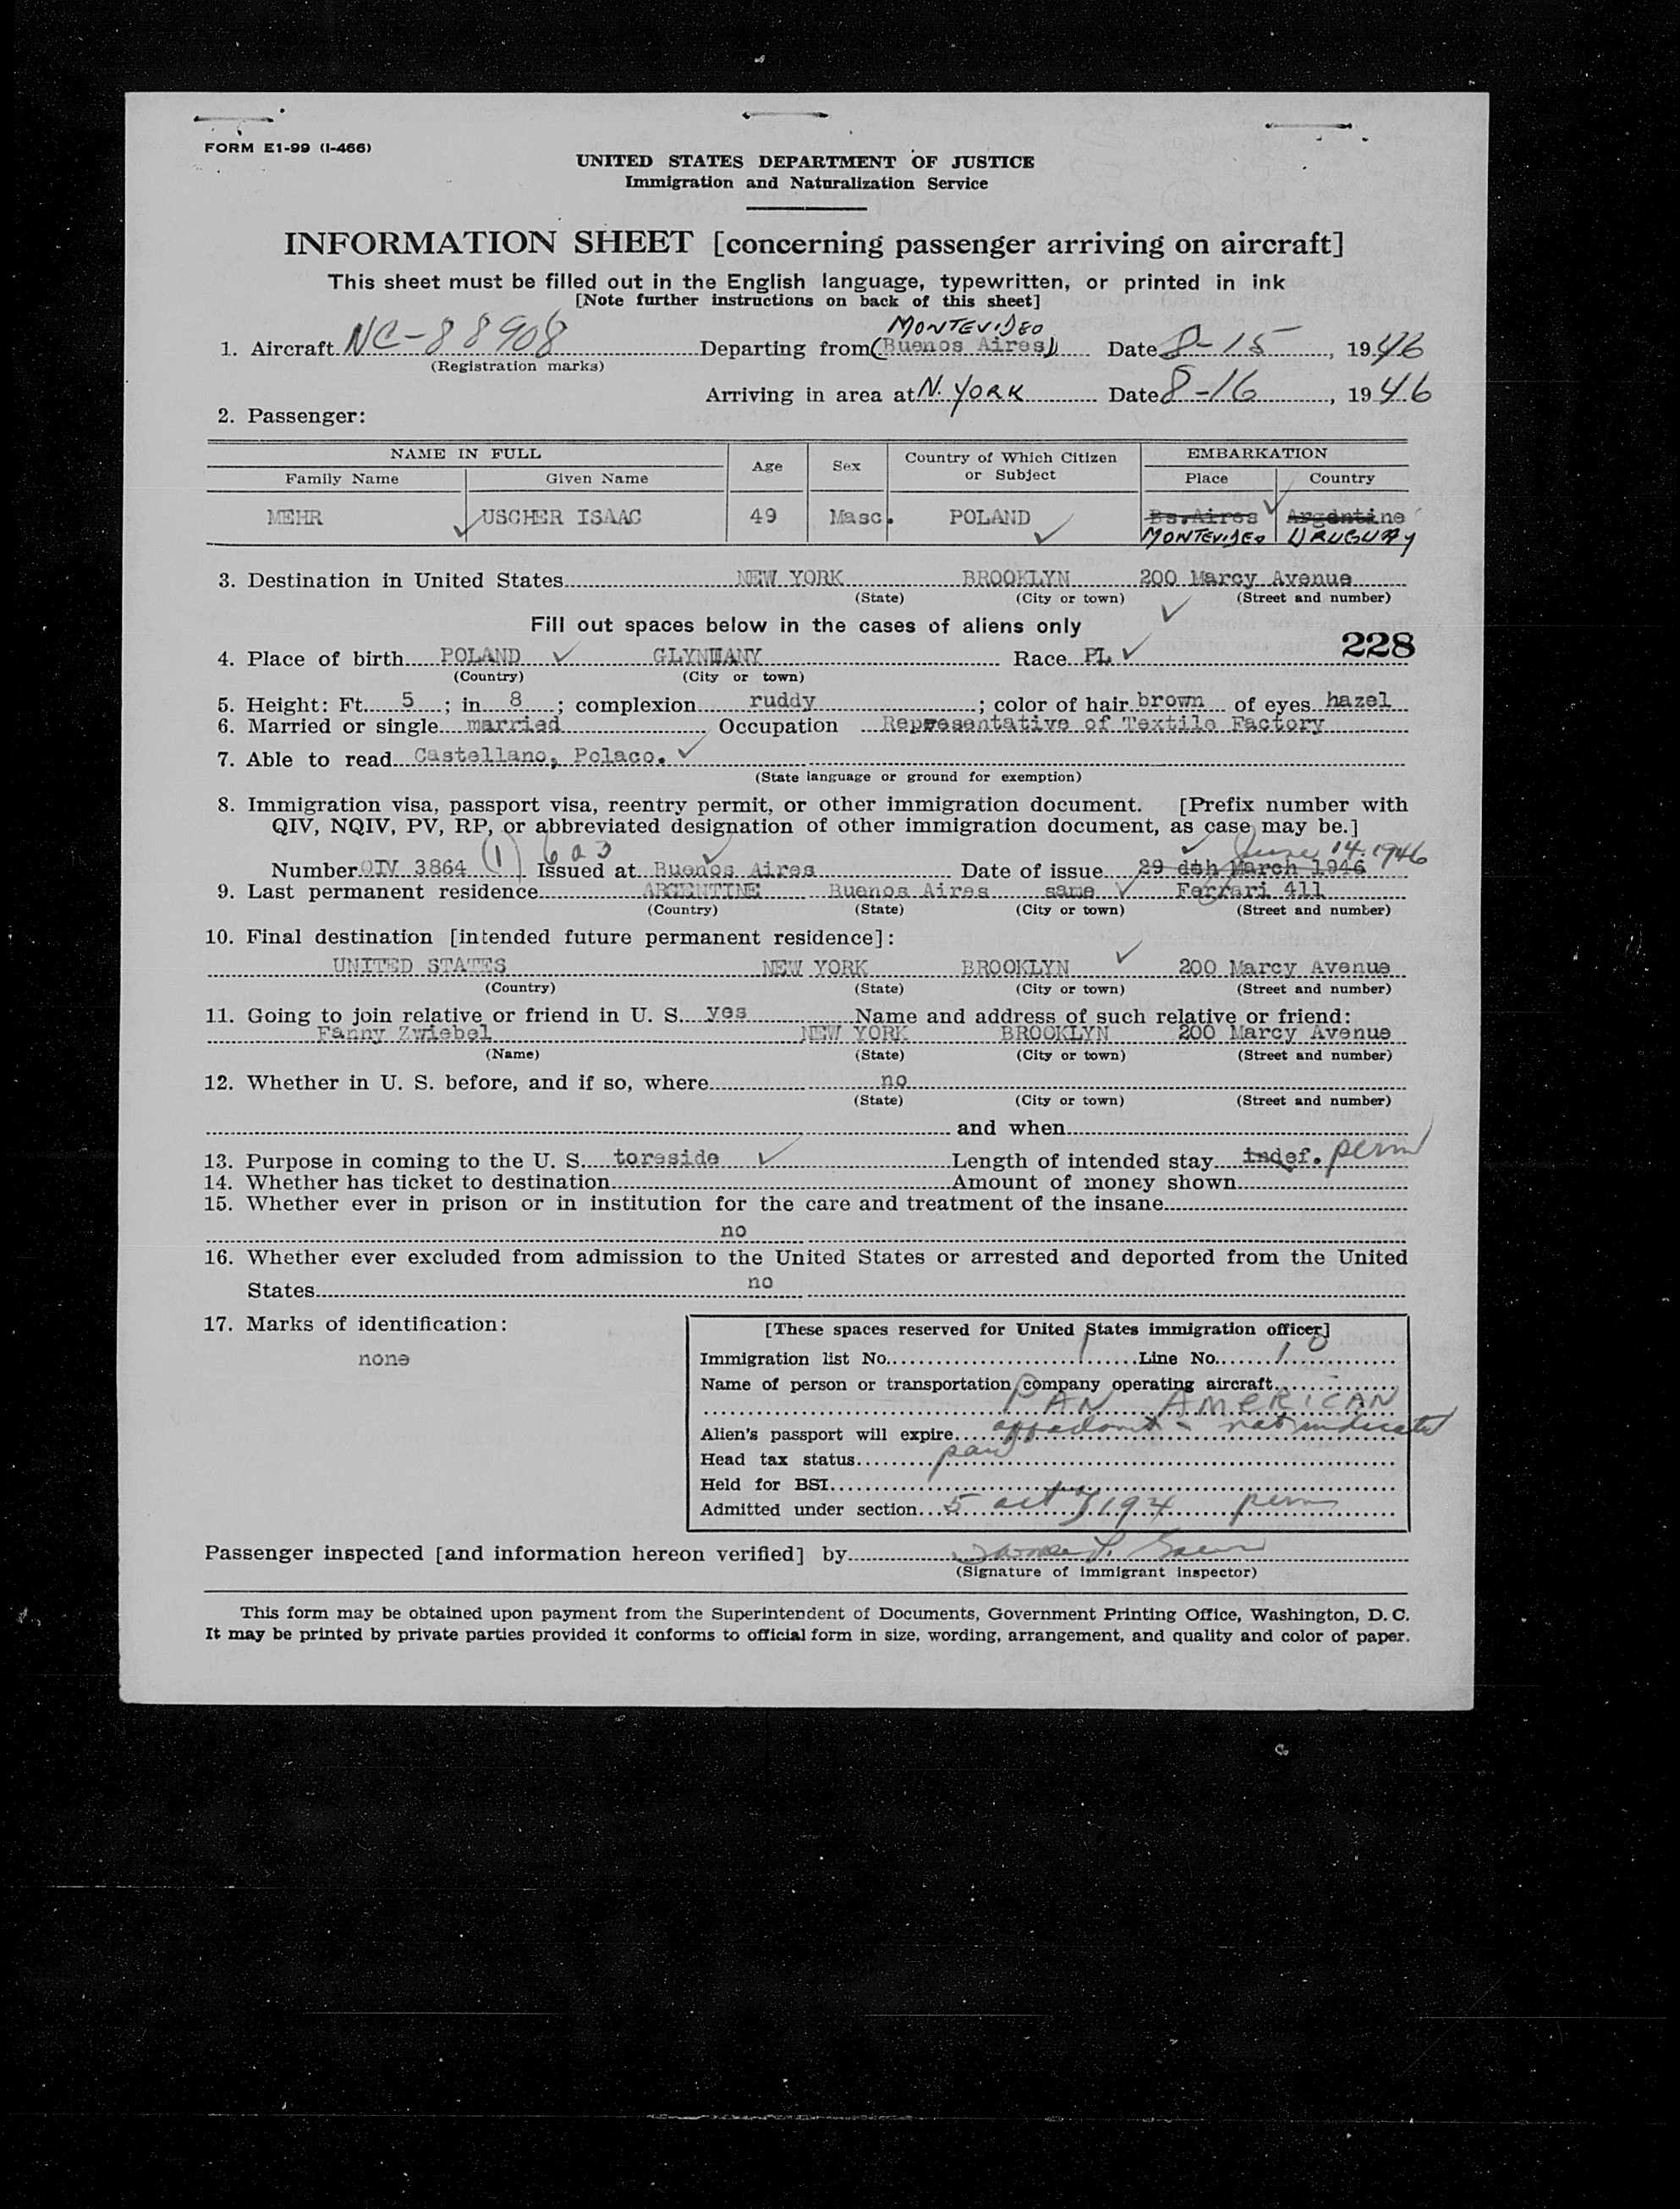 FORM E1-99 (I-466)
UNITED STATES DEPARTMENT OF JUSTICE
Immigration and Naturalization Service
INFORMATION SHEET [concerning passenger arriving on aircraft]
This sheet must be filled out in the English language, typewritten, or printed in ink
[Note further instructions on back of this sheet]
MONTEVIDEO
1. Aircraft NC-88908 Departing from (Buenos Aires) Date 8-15, 1946
(Registration marks)
Arriving in area at N. YORK Date 8-16, 1946
2. Passenger:
NAME IN FULL Age Sex Country of Which Citizen or Subject EMBARKATION
Family Name Given Name Place Country
MEHR USCHER ISAAC 49 Masc. POLAND Bs.Aires Argentine
MONTEVIDEO URUGUAY
3. Destination in United States NEW YORK BROOKLYN 200 Marcy Avenue
(State) (City or town) (Street and number)
Fill out spaces below in the cases of aliens only
228
4. Place of birth POLAND Race PL
(Country) (City or town)
5. Height: Ft. 5; in 8; complexion ruddy; color of hair brown of eyes hazel
6. Married or single married Occupation Representative of Textile Factory
7. Able to read Castellano, Polaco.
(State language or ground for exemption)
8. Immigration visa, passport visa, reentry permit, or other immigration document. [Prefix number with
QIV, NQIV, PV, RP, or abbreviated designation of other immigration document, as case may be.]
June 14. 1946
Number QIV 3864 (1) Issued at Buenos Aires Date of issue 29 dth March 1946
9. Last permanent residence ARGENTINE Buenos Aires same Ferrari 411
(Country) (State) (City or town) (Street and number)
10. Final destination [intended future permanent residence]:
UNITED STATES NEW YORK BROOKLYN 200 Marcy Avenue
(Country) (State) (City or town) (Street and number)
11. Going to join relative or friend in U. S. yes Name and address of such relative or friend:
Fanny Zwiebel NEW YORK BROOKLYN 200 Marcy Avenue
(Name) (State) (City or town) (Street and number)
12. Whether in U. S. before, and if so, where no
(State) (City or town) (Street and number)
and when
13. Purpose in coming to the U. S. toreside Length of intended stay indef. perm
14. Whether has ticket to destination Amount of money shown
15. Whether ever in prison or in institution for the care and treatment of the insane
no
16. Whether ever excluded from admission to the United States or arrested and deported from the United
States no
17. Marks of identification:
none
[These spaces reserved for United States immigration officer]
Immigration list No. 1 Line No. 10
Name of person or transportation company operating aircraft
PAN AMERICAN
Alien's passport will expire not indicated
Head tax status paid
Held for BSI
Admitted under section 5 act perm
Passenger inspected [and information hereon verified] by
(Signature of immigrant inspector)
This form may be obtained upon payment from the Superintendent of Documents, Government Printing Office, Washington, D. C.
It may be printed by private parties provided it conforms to official form in size, wording, arrangement, and quality and color of paper.